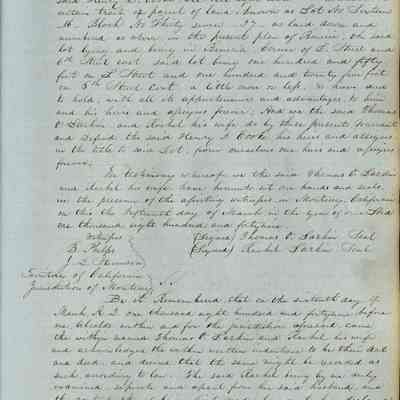 certain tract or parcel of land known as Lot No Sixteen
16. Block No Thirty seven 37. as laid down and
numbered as above in the present plan of Benicia, the said
lot lying and being in Benicia Corner of L Street and
6th Street east. said lot being one hundred and fifty
feet on L Street and one hundred and twenty five feet
on 6th Street East. a little more or less, to have and
to hold, with all its appurtenances and advantages, to him
and his heirs and assigns forever. And we the said Thomas
O Larkin and Rachel his wife do by these presents Warrant
and defend the said Henry J. Cooke his heirs and assigns
in the title to said Lot, from ourselves our heirs and assigns
forever.
In testimony whereof we the said Thomas O. Larkin
and Rachel his wife have hereunto set our hands and seals
in the presence of the attesting witnesses in Monterey, California
on this the fifteenth day of March in the year of our Lord
one thousand eight hundred and fortynine
Witness (Signed) Thomas O. Larkin Seal
B. Phelps (Signed) Rachel Larkin Seal
J. S.
Territory of California
Jurisdiction of Monterey
Be it Remembered that on the sixteenth day of
March A D one thousand eight hundred and fortynine before
me within and for the jurisdiction aforesaid, came
the within named Thomas O Larkin and Rachel his wife
and acknowledged the within written indenture to be their act
and deed, and desired that the same might be recorded as
such, according to law. The said Rachel being by me duly
examined separate and apart from her said husband, and